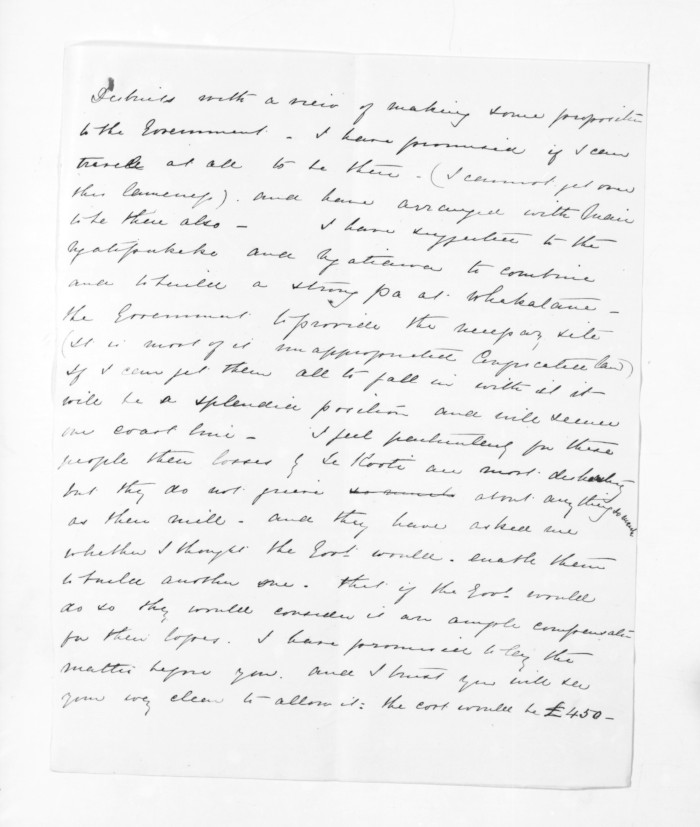 Debuils with a view of making some proposition
to the Government - I have promised if I can
travel at all to be there - (I cannot get over
this lameness). and have arranged with Mair
to be there also - I have suggested to the
Ngatipukeko and Ngatiawa to combine
and to build a strong pa at Whakatane -
the Government to provide the necessary site
(it is most of it unappropriated Confiscated land)
if I can get them all to fall in with it it
will be a splendid position and will secure
our coast line - I feel particularly for these
people their losses by Te Kooti are most distressing
but they do not grieve so much about anything so much
as their mill - and they have asked me
whether I thought the Govt. would enable them
to build another one. that if the Govt. would
do so they would consider it an ample compensation
for their losses. I have promised to lay the
matter before you. and I trust you will see
your way clear to allow it: the cost would be £450 -